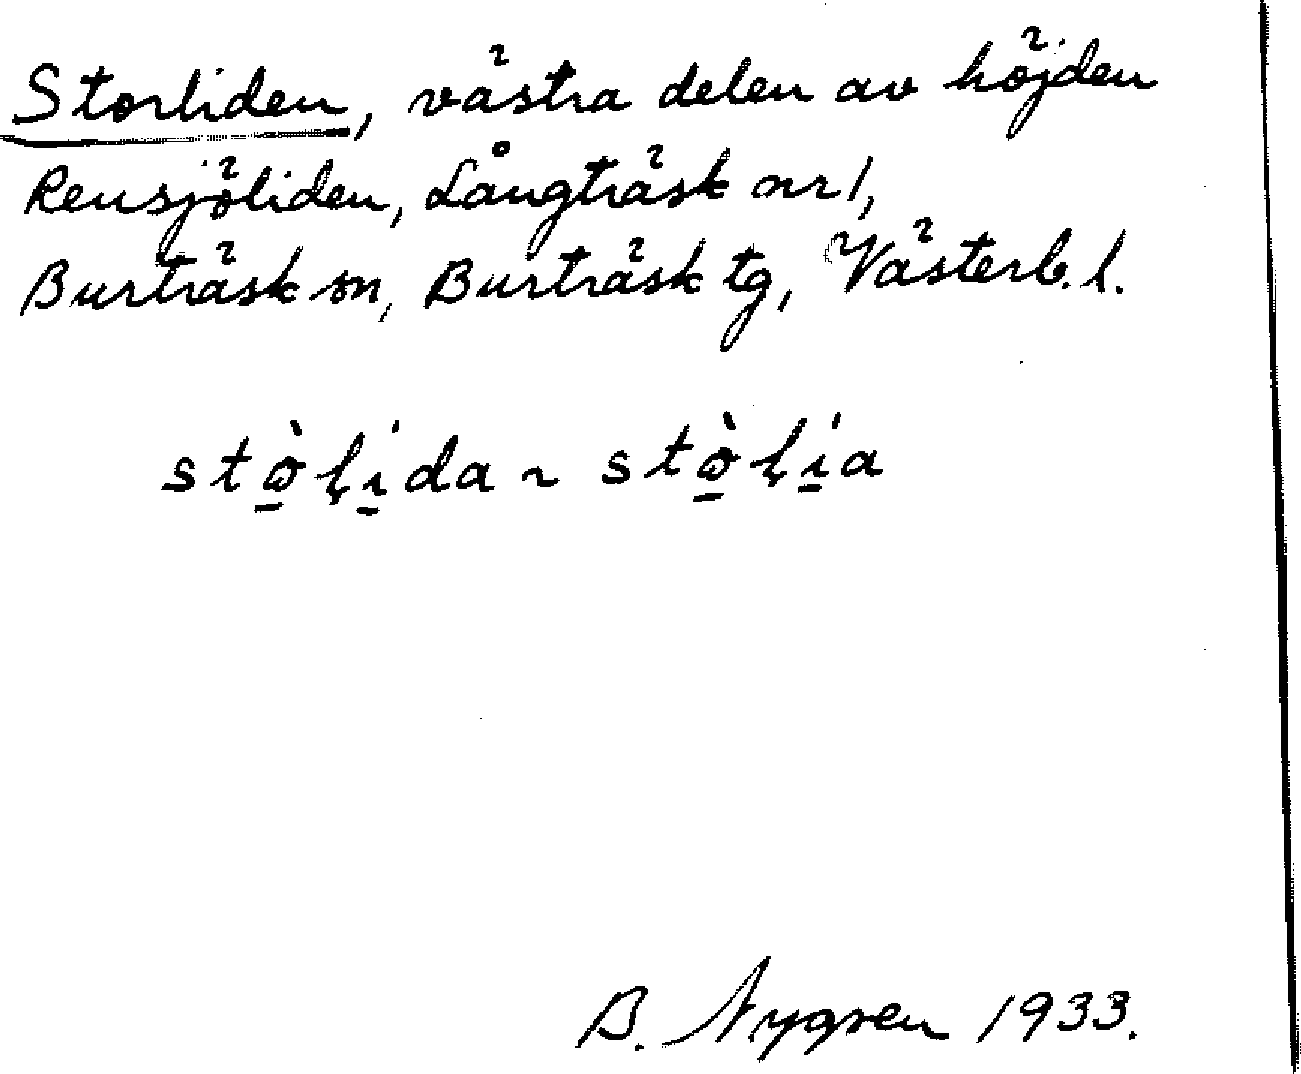 Storliden, västra delen av höjden
Rensjöliden, Långträsk nr 1,
Burträsk sn, Burträsk tg, Västerb. l.
stò̱ḷi̱da ~ stò̱ḷi̱a
B. Nygren 1933.